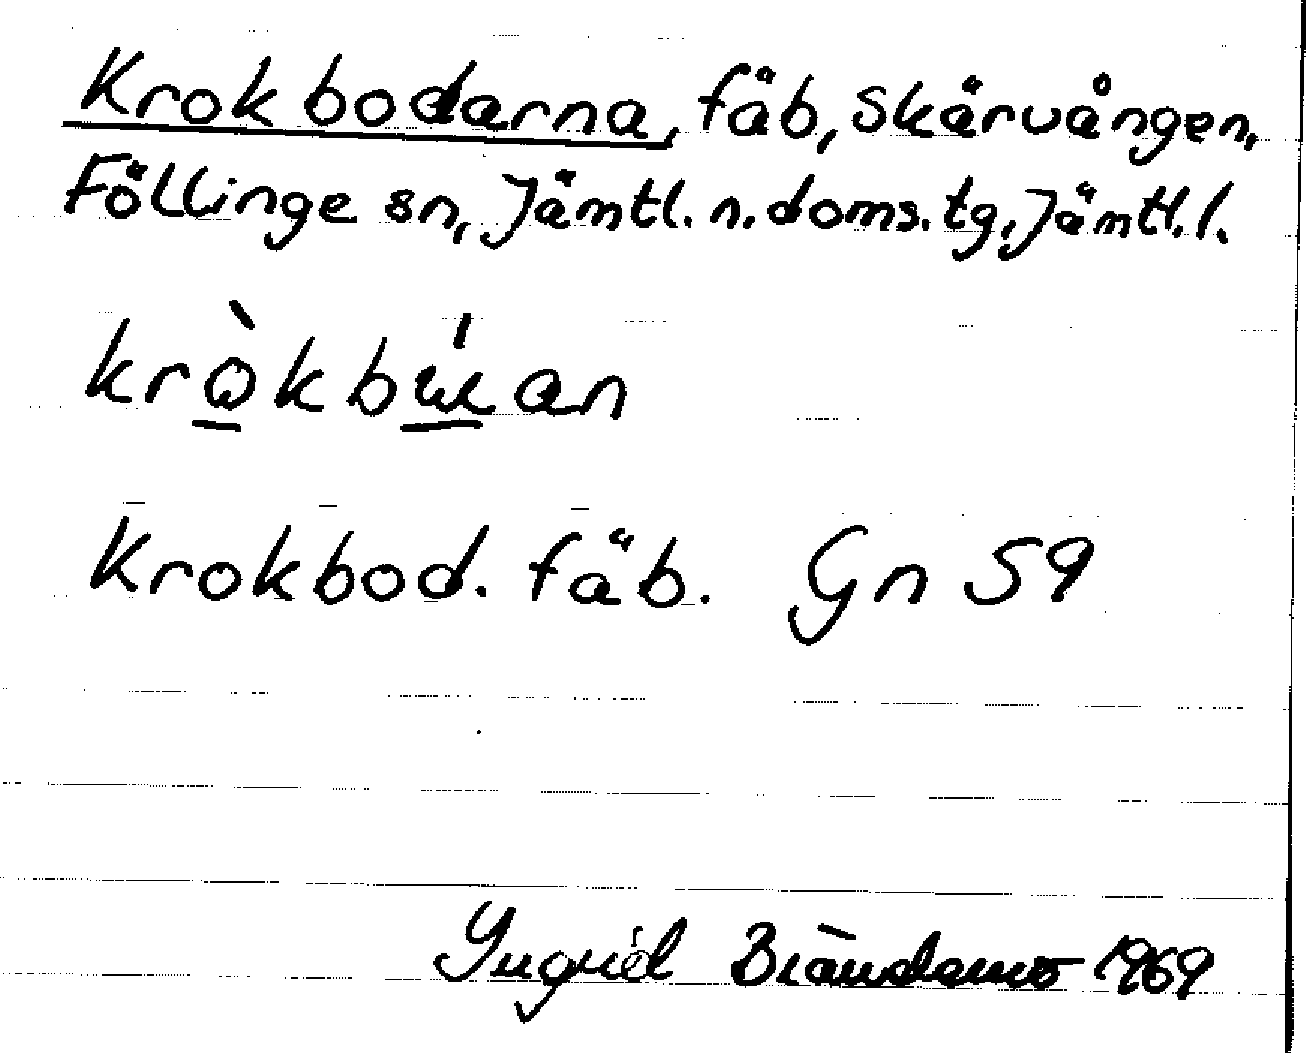 Krokbodarna, fäb, Skärvången,
Föllinge sn, Jämtl. n. doms. tg, Jämtl. l.
Krokbod. fäb. Gn 59
Ingrid Brändemo 1969